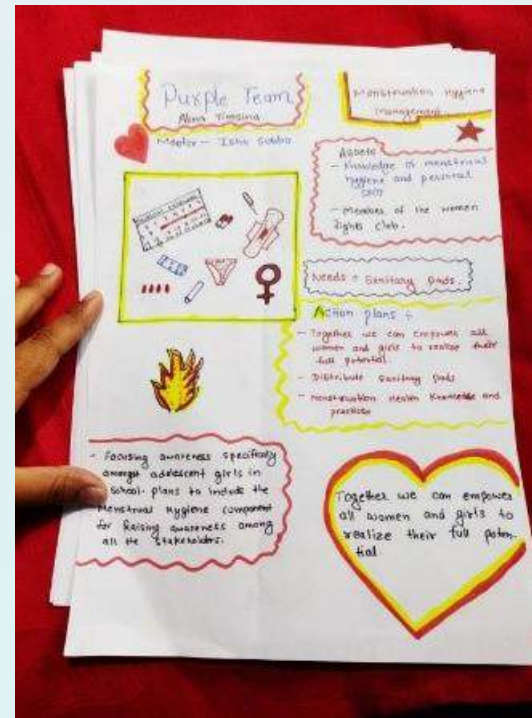 Purple Team
Alina Timsina
Mentor - Isha Subba
Menstruation Hygiene
Management
Assets
- Knowledge of menstrual
hygiene and personal
- Member of the women
rights club.
Needs ÷ Sanitary pads.
Action plans ÷
- Together we can empower all
women and girls to realize their
full potential.
- Distribute Sanitary pads
- Menstruation Health Knowledge and
practices
- Focusing awareness specifically
amongst adolescent girls in
School plans to include the
Menstrual Hygiene component
for Raising awareness among
all the stakeholders.
Together we can empower
all women and girls to
realize their full poten-
tial